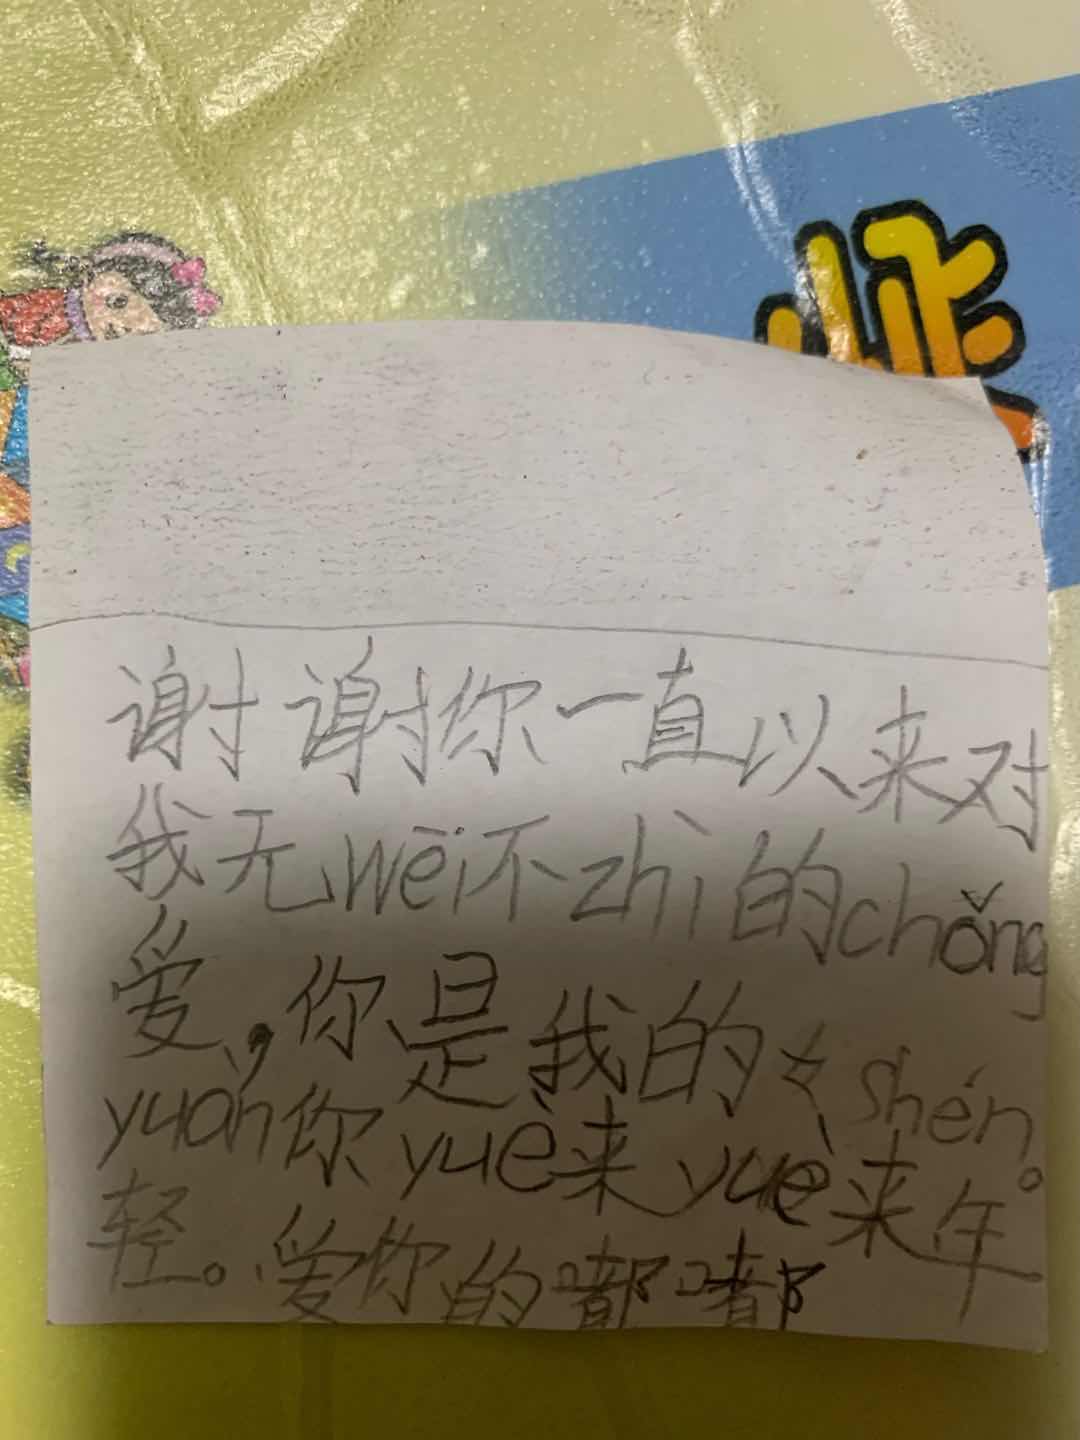 谢谢你一直以来对
我无wēi不zhì的chǒng
爱,你是我的女shén。
yuàn你yuè来yuè来年
轻。爱你的嘟嘟